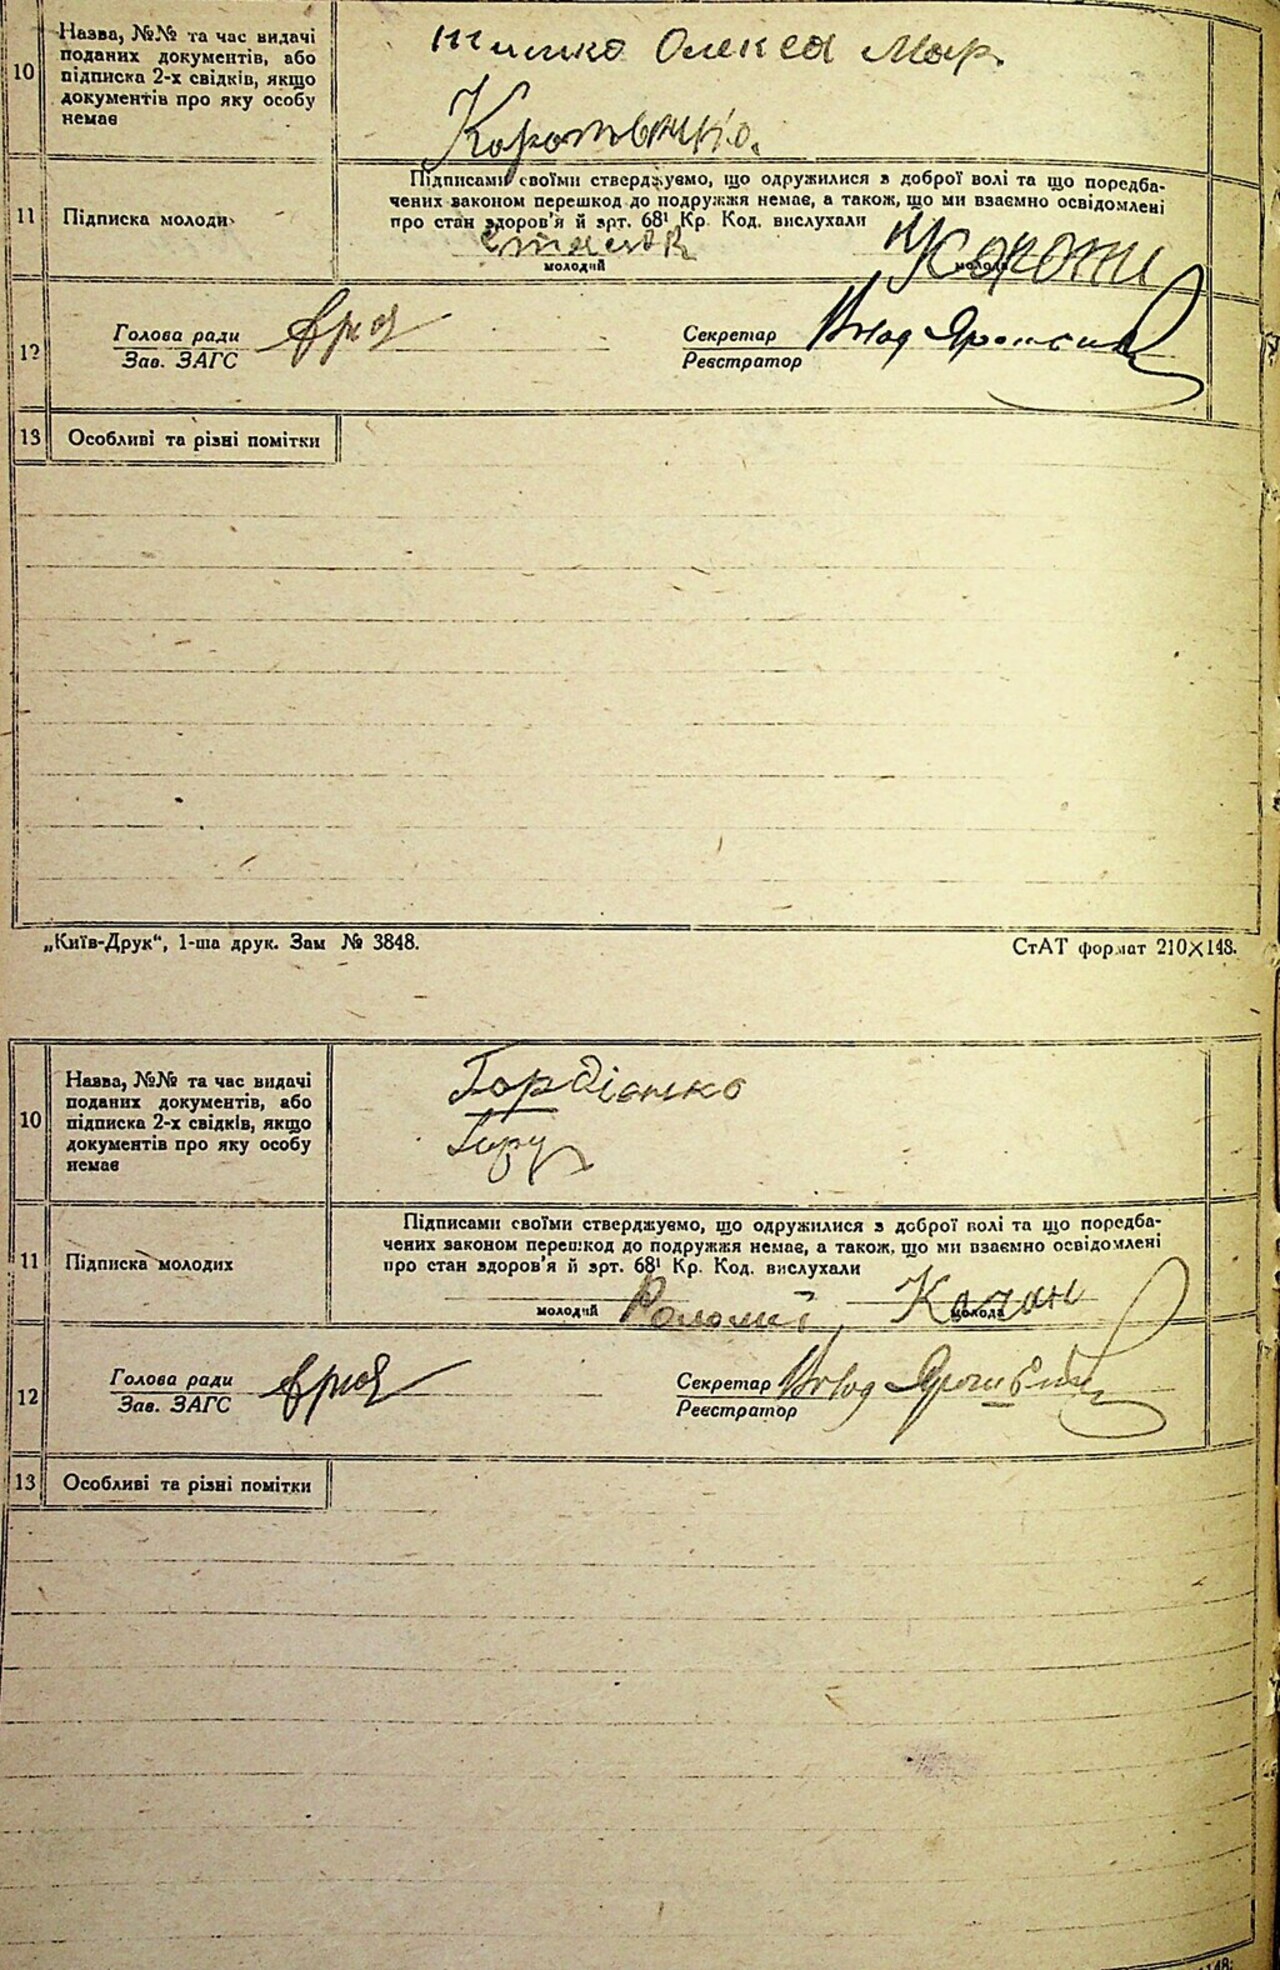 10
Назва, №№ та час видачі
поданих документів, або
підписка 2-х свідків, якщо
документів про яку особу
немає
Олекса Мар.
11
Підписка молоди
Підписами своїми стверджуємо, що одружилися з доброї волі та що поредба-
чених законом перешкод до подружжя немає, а також, що ми взаємно освідомлені
про стан здоров'я й арт. 68¹ Кр. Код. вислухали
молодий
молода
12
Голова ради
Зав. ЗАГС
Секретар
Реєстратор
13
Особливі та різні помітки
„Київ-Друк“, 1-ша друк. Зам № 3848.
СтАТ формат 210×148.
10
Назва, №№ та час видачі
поданих документів, або
підписка 2-х свідків, якщо
документів про яку особу
немає
Гордієнко
11
Підписка молодих
Підписами своїми стверджуємо, що одружилися з доброї волі та що поредба-
чених законом перешкод до подружжя немає, а також, що ми взаємно освідомлені
про стан здоров'я й арт. 68¹ Кр. Код. вислухали
молодий
Качан
молода
12
Голова ради
Зав. ЗАГС
Секретар
Реєстратор
13
Особливі та різні помітки
148.